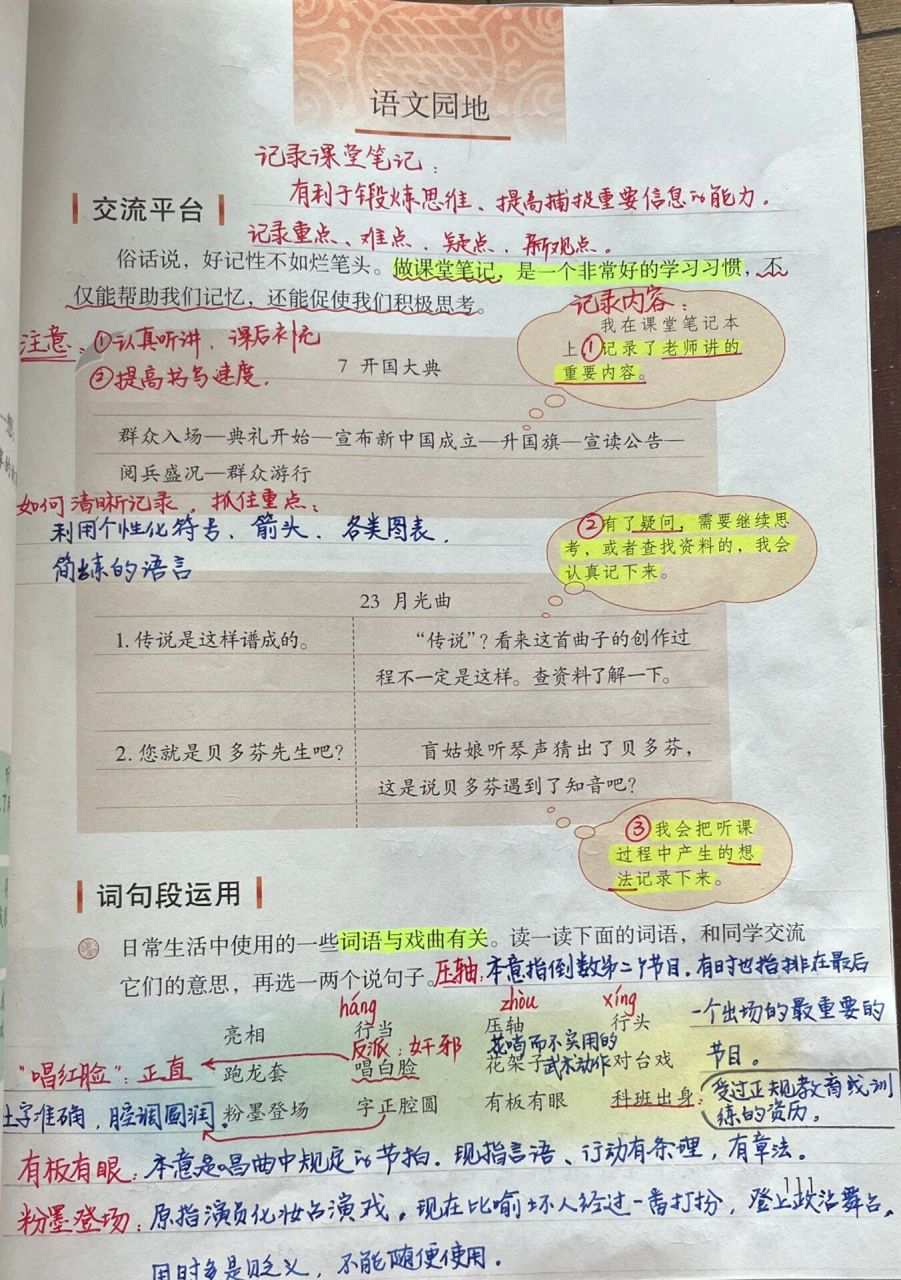 语文园地
记录课堂笔记：
有利于锻炼思维、提高捕捉重要信息的能力。
交流平台
记录重点、难点、疑点、新观点。
俗话说，好记性不如烂笔头。做课堂笔记，是一个非常好的学习习惯，不
仅能帮助我们记忆，还能促使我们积极思考。
记录内容：
注意：①认真听讲，课后补充
②提高书写速度，
我在课堂笔记本
上①记录了老师讲的
重要内容。
7 开国大典
群众入场—典礼开始—宣布新中国成立—升国旗—宣读公告—
阅兵盛况—群众游行
如何清晰记录，抓住重点：
利用个性化符号、箭头、各类图表，
简练的语言
②有了疑问，需要继续思
考，或者查找资料的，我会
认真记下来。
23 月光曲
1. 传说是这样谱成的。
“传说”？看来这首曲子的创作过
程不一定是这样。查资料了解一下。
2. 您就是贝多芬先生吧？
盲姑娘听琴声猜出了贝多芬，
这是说贝多芬遇到了知音吧？
③我会把听课
过程中产生的想
法记录下来。
词句段运用
日常生活中使用的一些词语与戏曲有关。读一读下面的词语，和同学交流
它们的意思，再选一两个说句子。
压轴：本意指倒数第二个节目。有时也指排在最后
一个出场的最重要的
节目。
háng zhòu xíng
亮相 行当 压轴 行头
反派：奸邪 花哨而不实用的
武术动作
“唱红脸”：正直
跑龙套 唱白脸 花架子 对台戏
土字准确，腔调圆润。
粉墨登场 字正腔圆 有板有眼 科班出身：
受过正规教育或训
练的资历。
有板有眼：本意是唱曲中规定的节拍。现指言语、行动有条理，有章法。
111
粉墨登场：原指演员化妆台演戏。现在比喻坏人经过一番打扮，登上政治舞台。
用时多是贬义，不能随便使用。